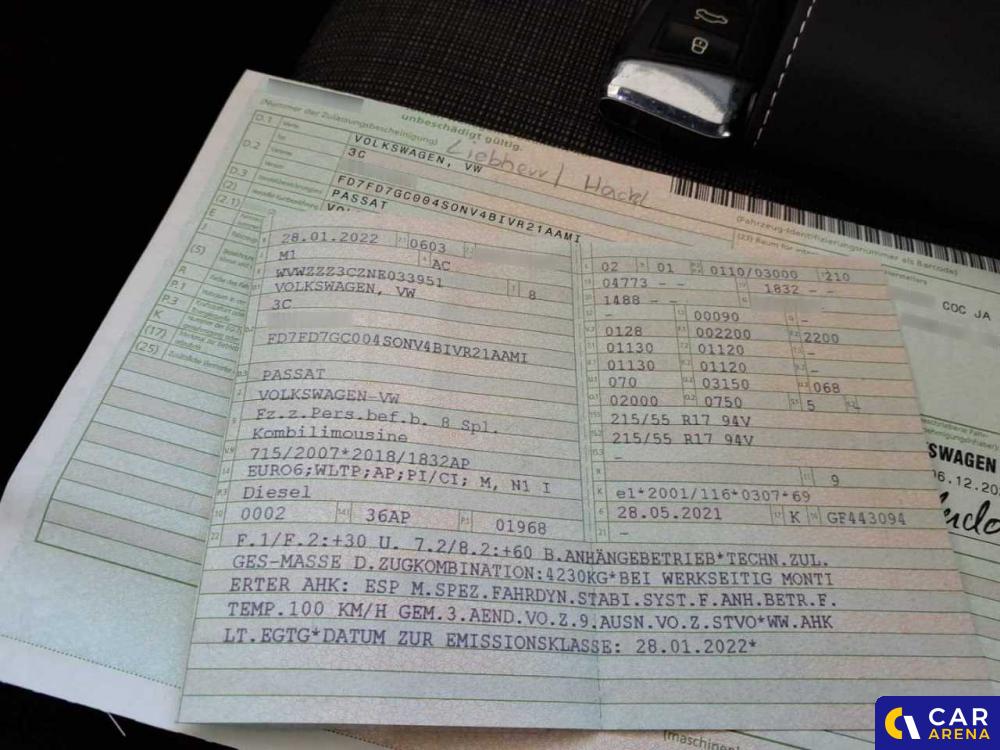 unbeschädigt gültig.
(Nummer der Zulassungsbescheinigung)
D.1 VOLKSWAGEN, VW
Liebherr/
D.2 3C
FD7FD7GC004SONV4BIVR21AAMI
D.3 PASSAT
(2)
(2.1)
E
J
(5)
R
P.1
P.3
K
(17)
(25)
(Fahrzeug-Identifizierungsnummer als Barcode)
COC JA
SWAGEN
28.01.2022 0603
M1 AC
WVWZZZ3CZNE033951 8
VOLKSWAGEN, VW
3C
FD7FD7GC004SONV4BIVR21AAMI
PASSAT
VOLKSWAGEN-VW
Fz.z.Pers.bef.b. 8 Spl.
Kombilimousine
715/2007*2018/1832AP
EURO6;WLTP;AP;PI/CI; M, N1 I
Diesel
0002 36AP 01968
02 01 0110/03000 210
04773 - - 1832 - -
1488 - -
- 00090 -
0128 002200 2200
01130 01120 -
01130 01120 -
070 03150 068
02000 0750 5
215/55 R17 94V
215/55 R17 94V
-
9
e1*2001/116*0307*69
28.05.2021 K GF443094
-
F.1/F.2:+30 U. 7.2/8.2:+60 B.ANHÄNGEBETRIEB*TECHN.ZUL.
GES-MASSE D.ZUGKOMBINATION:4230KG*BEI WERKSEITIG MONTI
ERTER AHK: ESP M.SPEZ.FAHRDYN.STABI.SYST.F.ANH.BETR.F.
TEMP.100 KM/H GEM.3.AEND.VO.Z.9.AUSN.VO.Z.STVO*WW.AHK
LT.EGTG*DATUM ZUR EMISSIONSKLASSE: 28.01.2022*
CAR
ARENA